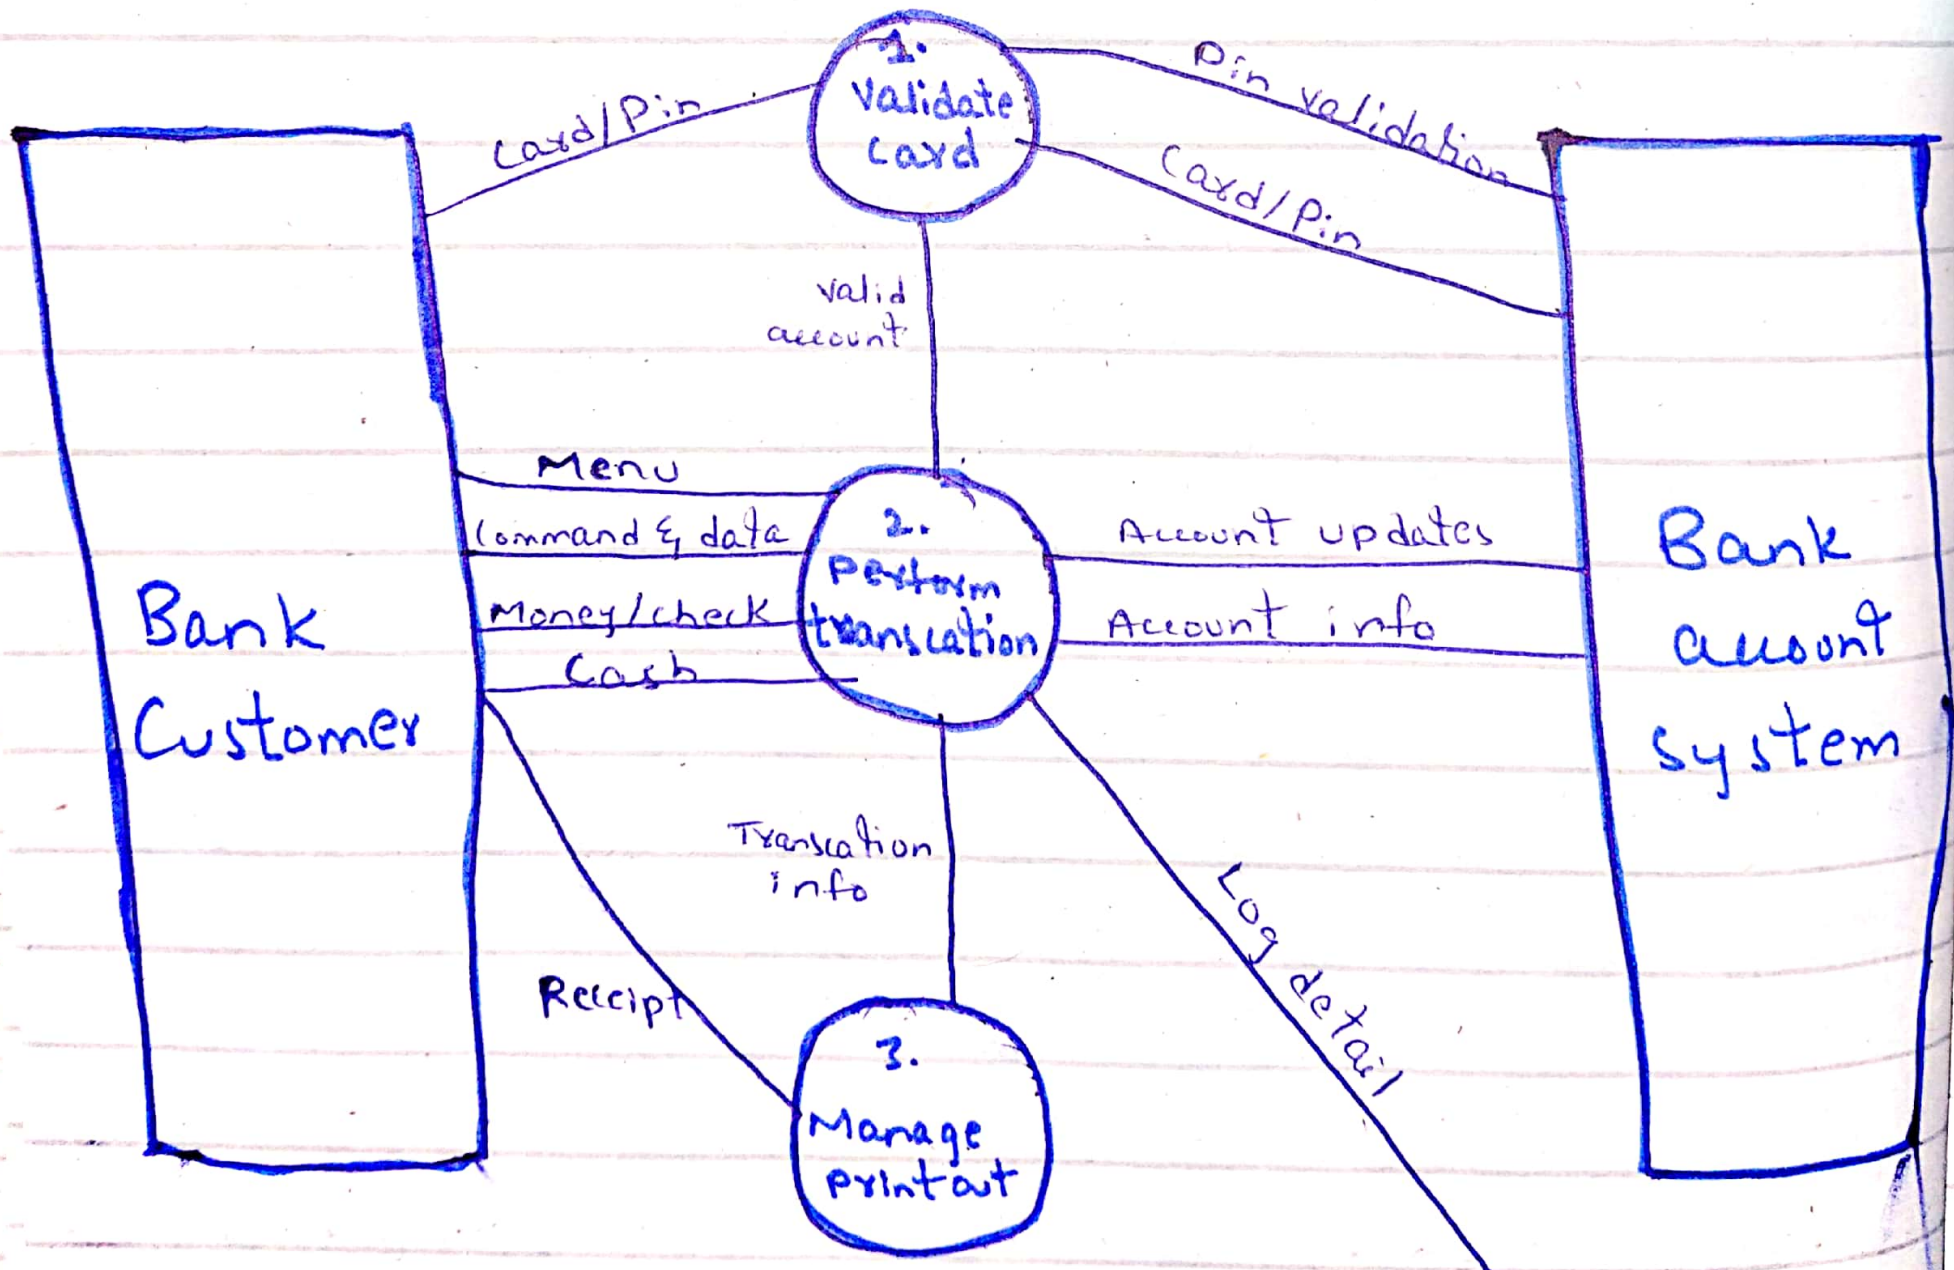 1.
Validate
card
Card/Pin
Pin validation
Card/Pin
Valid
account
Menu
Command & data
Money/check
Cash
2.
Perform
transcation
Account updates
Account info
Bank
Customer
Bank
account
system
Transcation
info
Receipt
Log detail
3.
Manage
printout